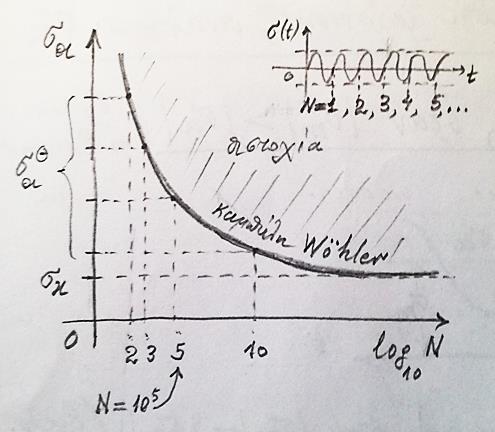 σα
σ(t)
0
t
N=1, 2, 3, 4, 5, ...
αστοχία
σαθ
καμπύλη Wöhler
σκ
0
2 3 5 10
log10 N
N=10⁵